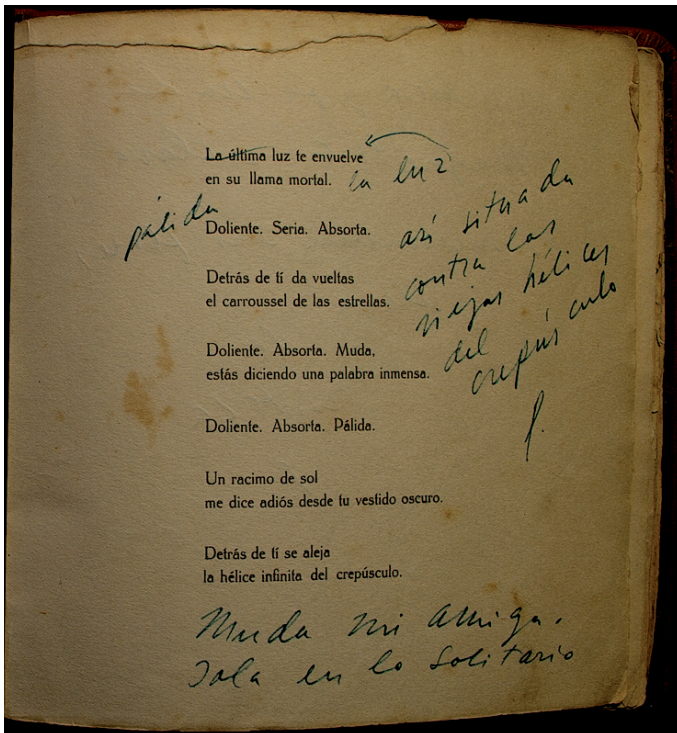 La última luz te envuelve
en su llama mortal. la luz
pálida
Doliente. Seria. Absorta.
así situada
contra las
viejas hélices
del
crepúsculo
Detrás de tí da vueltas
el carroussel de las estrellas.
Doliente. Absorta. Muda,
estás diciendo una palabra inmensa.
Doliente. Absorta. Pálida.
Un racimo de sol
me dice adiós desde tu vestido oscuro.
Detrás de tí se aleja
la hélice infinita del crepúsculo.
Muda mi amiga.
Sola en lo solitario